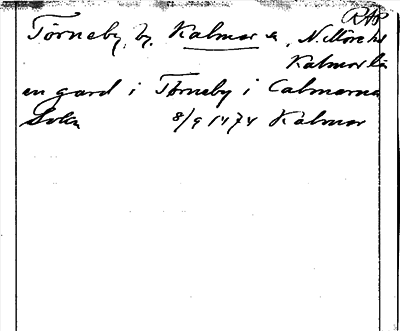 RAP
Törneby, by. Kalmar s, N. Möre hd
Kalmar län
en gard i Törneby i Calmarna
Sokn 8/9 1474 Kalmar